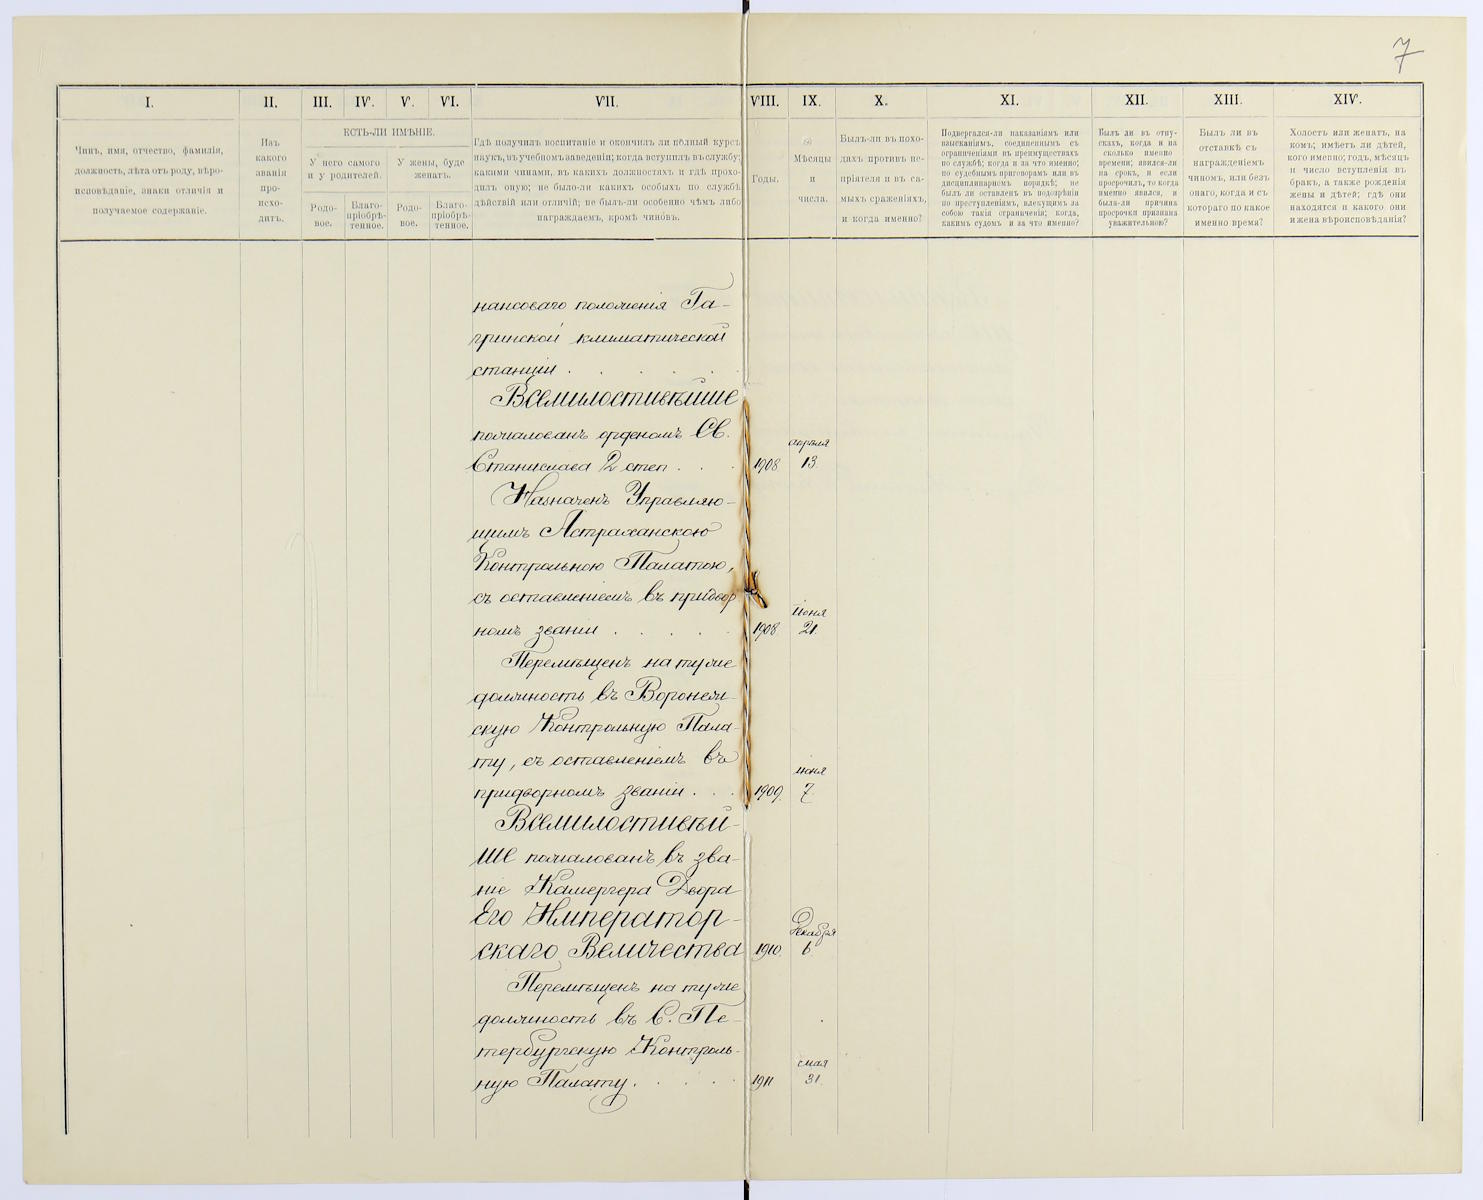 7
I. II. III. IV. V. VI. VII. VIII. IX. X. XI. XII. XIII. XIV.
Чинъ, имя, отчество, фамилія,
должность, лѣта отъ роду, вѣро-
исповѣданіе, знаки отличія и
получаемое содержаніе.
Изъ
какого
званія
про-
исхо-
дитъ.
ЕСТЬ-ЛИ ИМѢНІЕ.
У него самого
и у родителей.
У жены, буде
женатъ.
Родо-
вое.
Благо-
пріобрѣ-
тенное.
Родо-
вое.
Благо-
пріобрѣ-
тенное.
Гдѣ получилъ воспитаніе и окончилъ ли полный курсъ
наукъ, въ учебномъ заведеніи; когда вступилъ въ службу;
какими чинами, въ какихъ должностяхъ и гдѣ прохо-
дилъ оную; не было-ли какихъ особыхъ по службѣ
дѣйствій или отличій; не былъ-ли особенно чѣмъ либо
награждаемъ, кромѣ чиновъ.
Годы.
Мѣсяцы
и
числа.
Былъ-ли въ похо-
дахъ противъ не-
пріятеля и въ са-
мыхъ сраженіяхъ,
и когда именно?
Подвергался-ли наказаніямъ или
взысканіямъ, соединеннымъ съ
ограниченіями въ преимуществахъ
по службѣ; когда и за что именно;
по судебнымъ приговорамъ или въ
дисциплинарномъ порядкѣ; не
былъ ли оставленъ въ подозрѣніи
по преступленіямъ, влекущимъ за
собою такія ограниченія; когда,
какимъ судомъ и за что именно?
Былъ ли въ отпу-
скахъ, когда и на
сколько именно
времени; явился-ли
на срокъ, и если
просрочилъ, то когда
именно явился, и
была-ли причина
просрочки признана
уважительною?
Былъ ли въ
отставкѣ съ
награжденіемъ
чиномъ, или безъ
онаго, когда и съ
котораго по какое
именно время?
Холостъ или женатъ, на
комъ; имѣетъ ли дѣтей,
кого именно; годъ, мѣсяцъ
и число вступленія въ
бракъ, а также рожденія
жены и дѣтей; гдѣ они
находятся и какого они
и жена вѣроисповѣданія?
нансоваго положенія Га-
гринской климатической
станціи . . . . . .
Всемилостивѣйше
пожалованъ орденомъ Св.
Станислава 2 степ . . . 1908 апрѣля 13.
Назначенъ Управляю-
щимъ Астраханскою
Контрольною Палатою,
съ оставленіемъ въ придвор
номъ званіи . . . . . 1908 іюня 21.
Перемѣщенъ на ту же
должность въ Воронеж-
скую Контрольную Пала-
ту, съ оставленіемъ въ
придворномъ званіи . . . 1909. іюня 7.
Всемилостивѣй-
ше пожалованъ въ зва-
ніе Камергера Двора
Его Император-
скаго Величества 1910. Декабря 6.
Перемѣщенъ на ту же
должность въ С. Пе-
тербургскую Контроль-
ную Палату . . . . . 1911 мая 31.